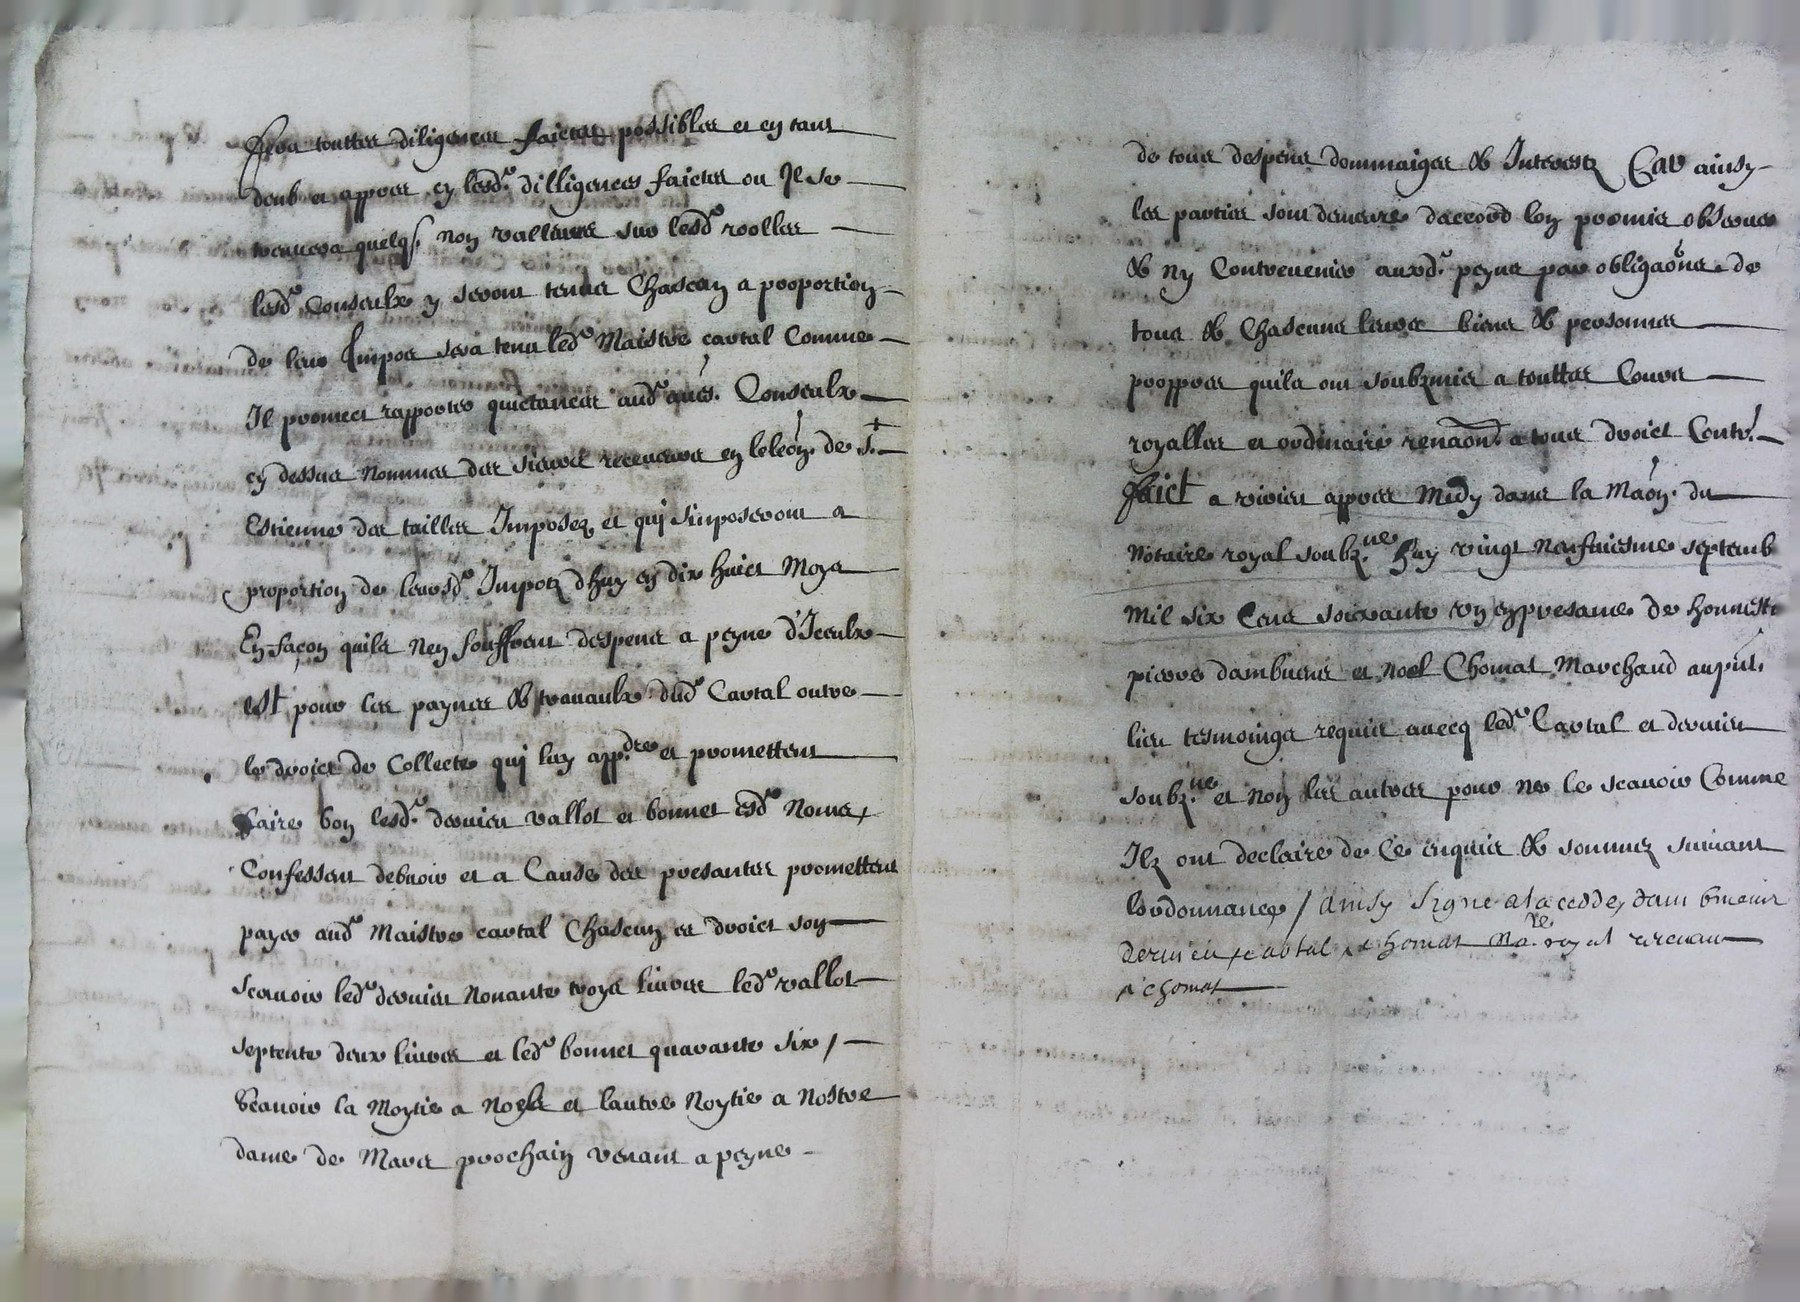 fera touttes diligences faictes possibles et en tant
deub et appres en lesd. dilligences faictes ou Il se
treuvera quelqs. non valleurs sur lesd. rolles
lesd. Conseulx y seront tenus Chascun a proportion
de leur Impos sera tenu led. Maistre cartal Comme
Il promect rapporter quictances aud. Conseulx
cy dessus nommes des sieurs receveurs en leleon. de St.
Estienne des tailles Imposez et quj simposeront a
proportion de leursd. Impotz dhuy en dix huict Moys
En façon quils nen souffrent despens a peyne d'Iceulx
Et pour les paynes & travaulx dud. Cartal outre
le droict de Collecte quj luy app.dre et promettent
faire bon lesd. dernier vallot et bonnet esd. Noms
Confessent debvoir et a Cause des presantes promettent
payer aud. Maistre cartal Chascun en droict soy
scavoir led. dernier Nonante troys livres led. vallot
septente deux livres et led. bonnet quarante six /
Scavoir la Moytie a Noels et lautre Moytie a Nostre
dame de Mars prochain venant a peyne
de tous despens dommaiges & Interestz Car ainsy
les parties sont demeure daccord lon promis observer
& ny Contrevenir auxd. peyne par obligaons. de
tous & Chascuns leurs biens & personnes
proppres quils ont soubzmis a touttes Cours
royalles et ordinaire renaon. a tous droict Contr.
faict a vivier appres Midy dans la Maon. du
Notaire royal soubz.ne huy vingt Neufuiesme septemb
mil six Cens soixante un en presance de honneste
pierre dambuent et Noel Chomat Marchand au pnt.
lieu tesmoings requis avecq led. Cartal et dernier
soubz.ne et non les autres pour ne le scavoir Comme
Ilz ont declaire de Ce enquis & sommez suivant
lordonnance / ainsy signe a la cedde dambuent
dernier cartal chomat No.re royal recevant
chomat